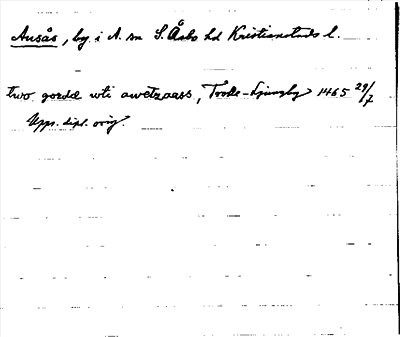 Ausås, by i A. sn S. Åsbo hd Kristianstads l.
two gordæ uti awetzaass, Troolle-Ljungby 1465 29/7
Upps. dipl. orig.